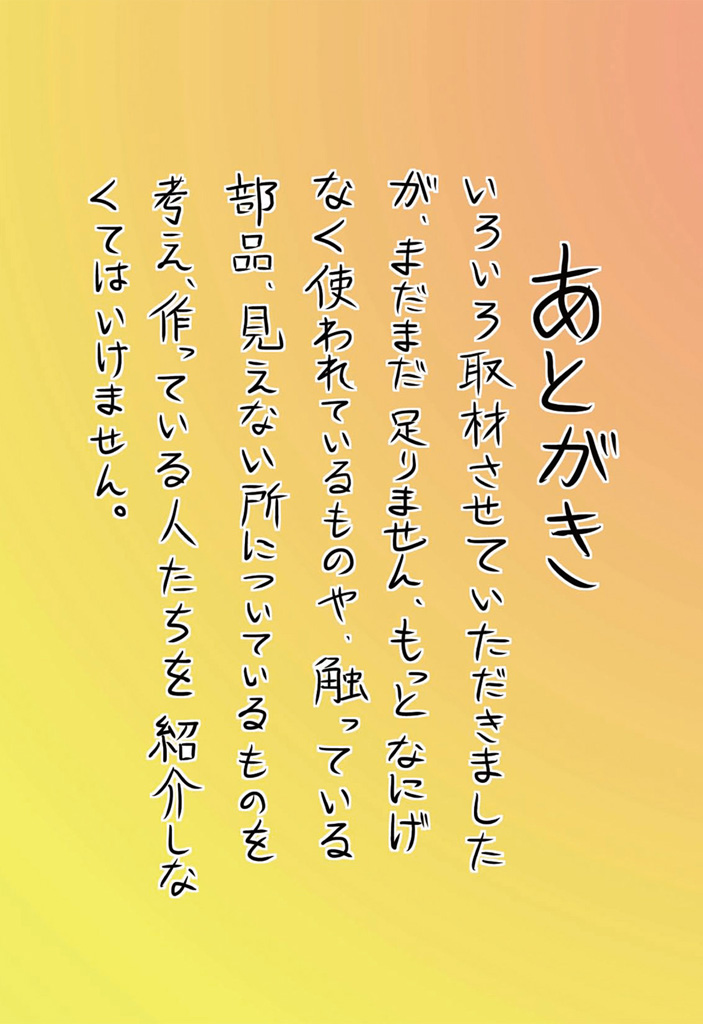 あとがき
いろいろ取材させていただきました
が、まだまだ足りません、もっとなにげ
なく使われているものや、触っている
部品、見えない所についているものを
考え、作っている人たちを紹介しな
くてはいけません。